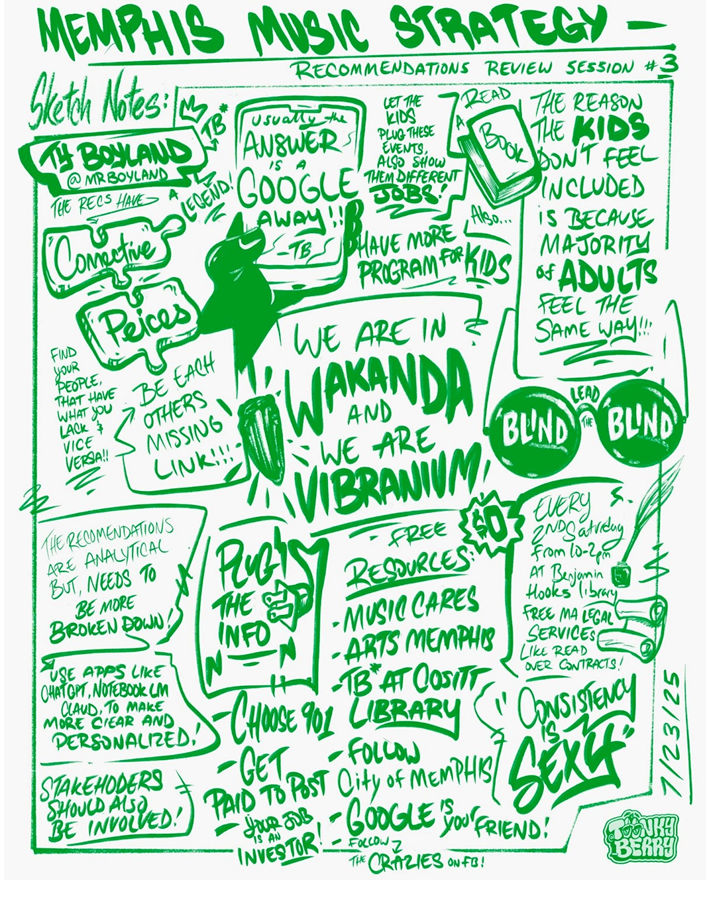 MEMPHIS MUSIC STRATEGY —
RECOMMENDATIONS REVIEW SESSION #3
Sketch Notes:
TY BOYLAND
@MRBOYLAND
TB*
A LEGEND!
THE RECS HAVE
"Connective
Peices
FIND
YOUR
PEOPLE,
THAT HAVE
WHAT YOU
LACK &
VICE
VERSA!!
BE EACH
OTHERS
MISSING
LINK!!!
usually the
ANSWER
IS A
GOOGLE
AWAY!!
-TB
LET THE
KIDS
PLUG THESE
EVENTS,
ALSO SHOW
THEM DIFFERENT
JOBS!
READ
A
BOOK
Also...
HAVE MORE
PROGRAM FOR KIDS
THE REASON
THE KIDS
DON'T FEEL
INCLUDED
IS BECAUSE
MAJORITY
of ADULTS
FEEL THE
SAME WAY!!!
BLIND LEAD THE BLIND
WE ARE IN
WAKANDA
AND
WE ARE
VIBRANIUM!
THE RECOMENDATIONS
ARE ANALYTICAL
BUT, NEEDS TO
BE MORE
BROKEN DOWN!
USE APPS LIKE
CHATGPT, NOTEBOOK LM
CLAUD, TO MAKE
MORE CLEAR AND
PERSONALIZED!
STAKEHODERS
SHOULD ALSO
BE INVOLVED!
PLUG
THE
INFO
N N
$0
FREE
RESOURCES:
- MUSIC CARES
- ARTS MEMPHIS
- TB* AT COSITT
LIBRARY
- FOLLOW
City of MEMPHIS
- GOOGLE IS
YOU'FRIEND!
- FOLLOW
THE CRAZIES ON FB!
- CHOOSE 901
- GET
PAID TO POST
- YOUR JOB
IS AN
INVESTOR!
EVERY
2ND Saturday
From 10-2pm
AT Benjamin
Hooks library
FREE MA LEGAL
SERVICES
LIKE READ
OVER CONTRACTS!
"CONSISTENCY
IS
SEXY"
7/23/25
TOONKY
BERRY